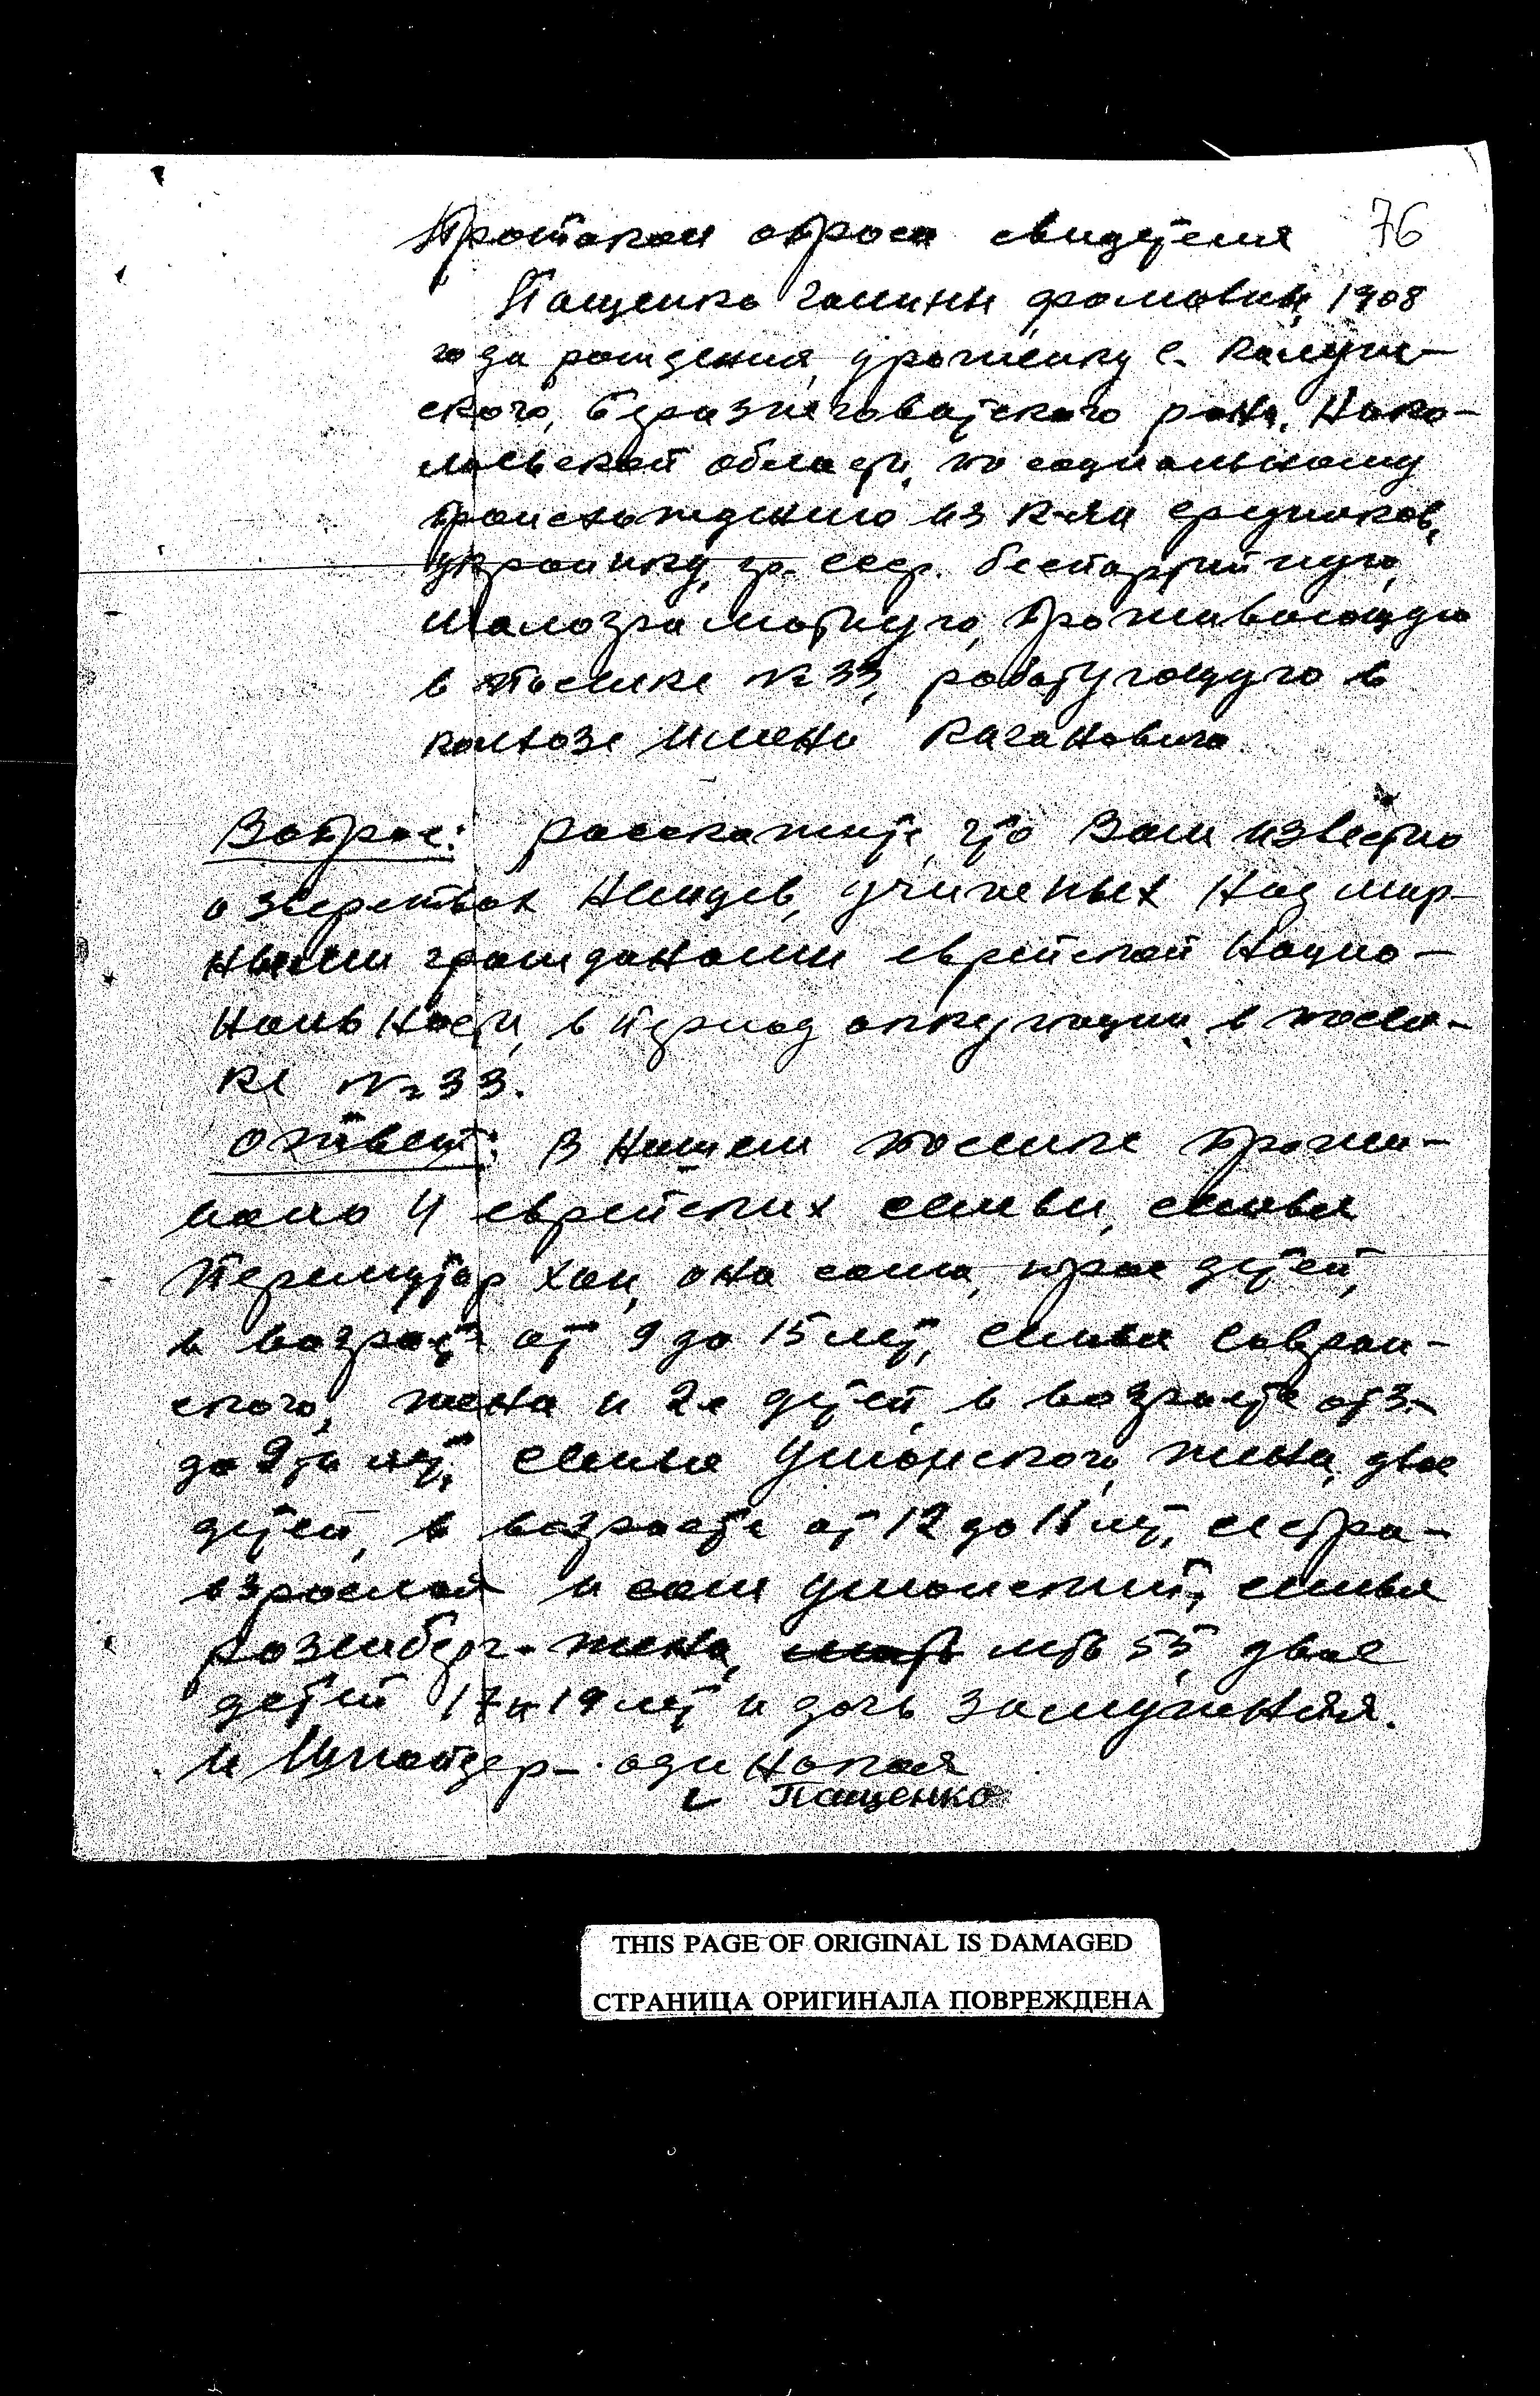 76
Протокол опроса свидетеля
Пащенко Галины Фомовны, 1908
года рождения, уроженку с. Калуж-
ского, Березнеговатского р-на, Нико-
лаевской области, по социальному
происхождению из к-ян середняков,
украинку, гр. ссср. беспартийную,
малограмотную, проживающую
в поселке № 33, работующую в
колхозе имени Кагановича.
Вопрос: расскажите, что Вам известно
о зверствах Немцев, учиненых Над мир-
ными гражданами еврейской Нацио-
нальности, в период оккупации в посел-
ке № 33.
ответ: В Нашем поселке прожи-
вало 4 еврейских семьи, семья
Хаи, она сама, трое детей,
в возрасте от 9 до 15 лет, семья Савран-
ского, жена и 2е детей в возрасте от 3-
до 9ти лет, семья Уманского, жена, двое
детей, в возрасте от 12 до лет, сестра-
взрослая и сам Уманский, семья
Розенберг- жена, лет 55, двое
детей 17 и 19 лет и дочь замужняя.
и одинокая
Пащенко
THIS PAGE OF ORIGINAL IS DAMAGED
СТРАНИЦА ОРИГИНАЛА ПОВРЕЖДЕНА